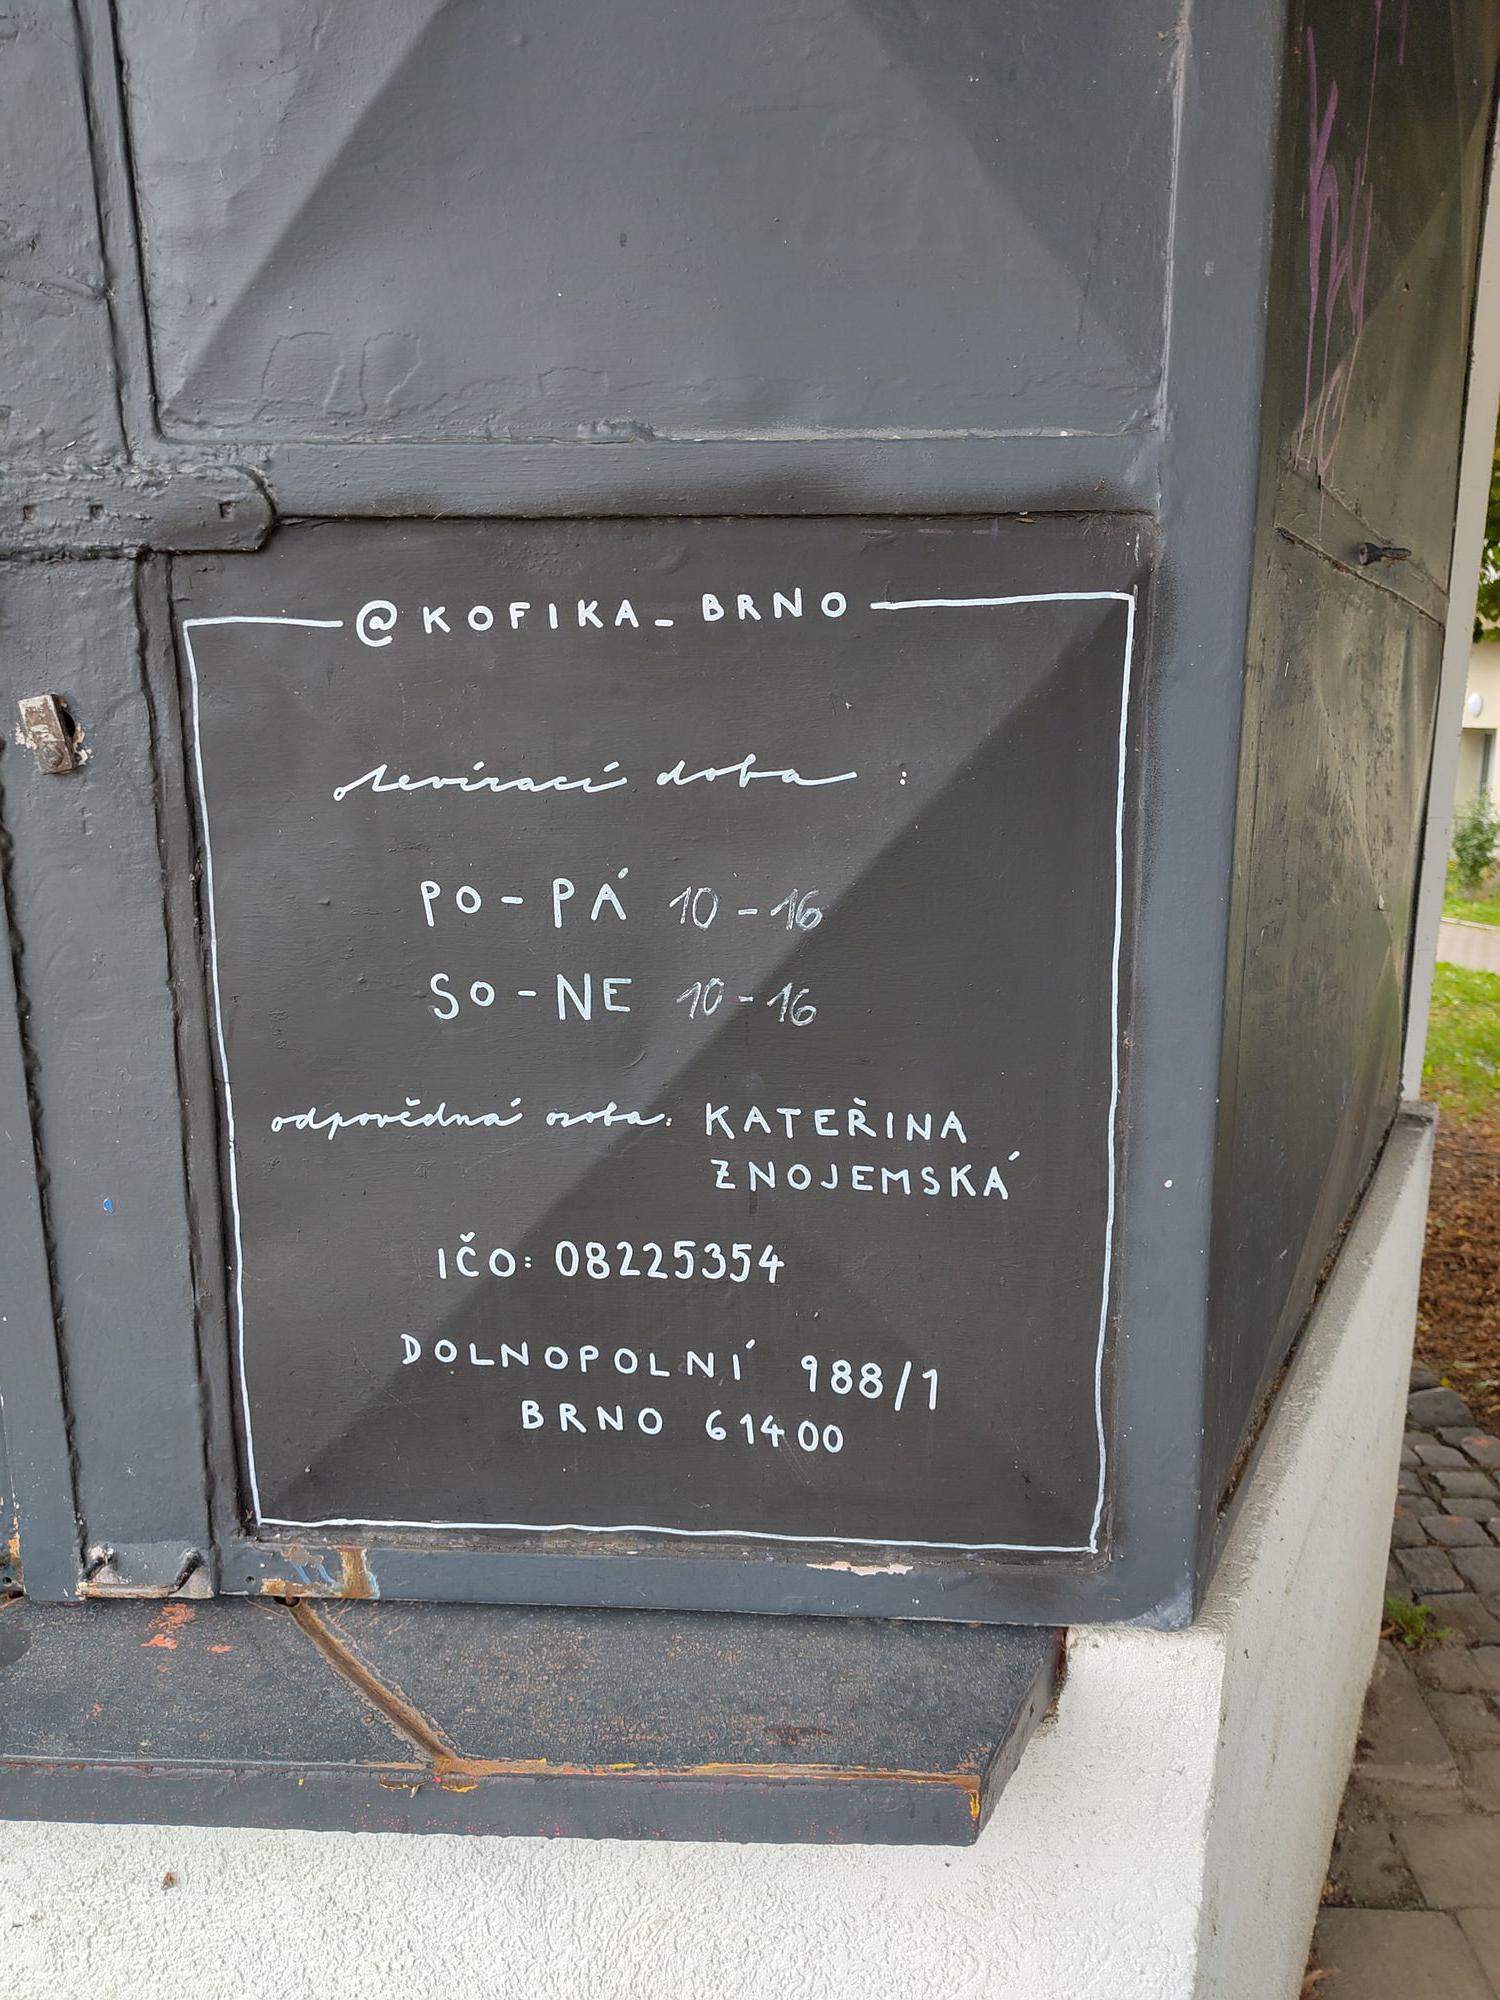 @KOFIKA_BRNO
otevírací doba :
PO-PÁ 10-16
SO-NE 10-16
odpovědná osoba: KATEŘINA
ZNOJEMSKÁ
IČO: 08225354
DOLNOPOLNÍ 988/1
BRNO 61400